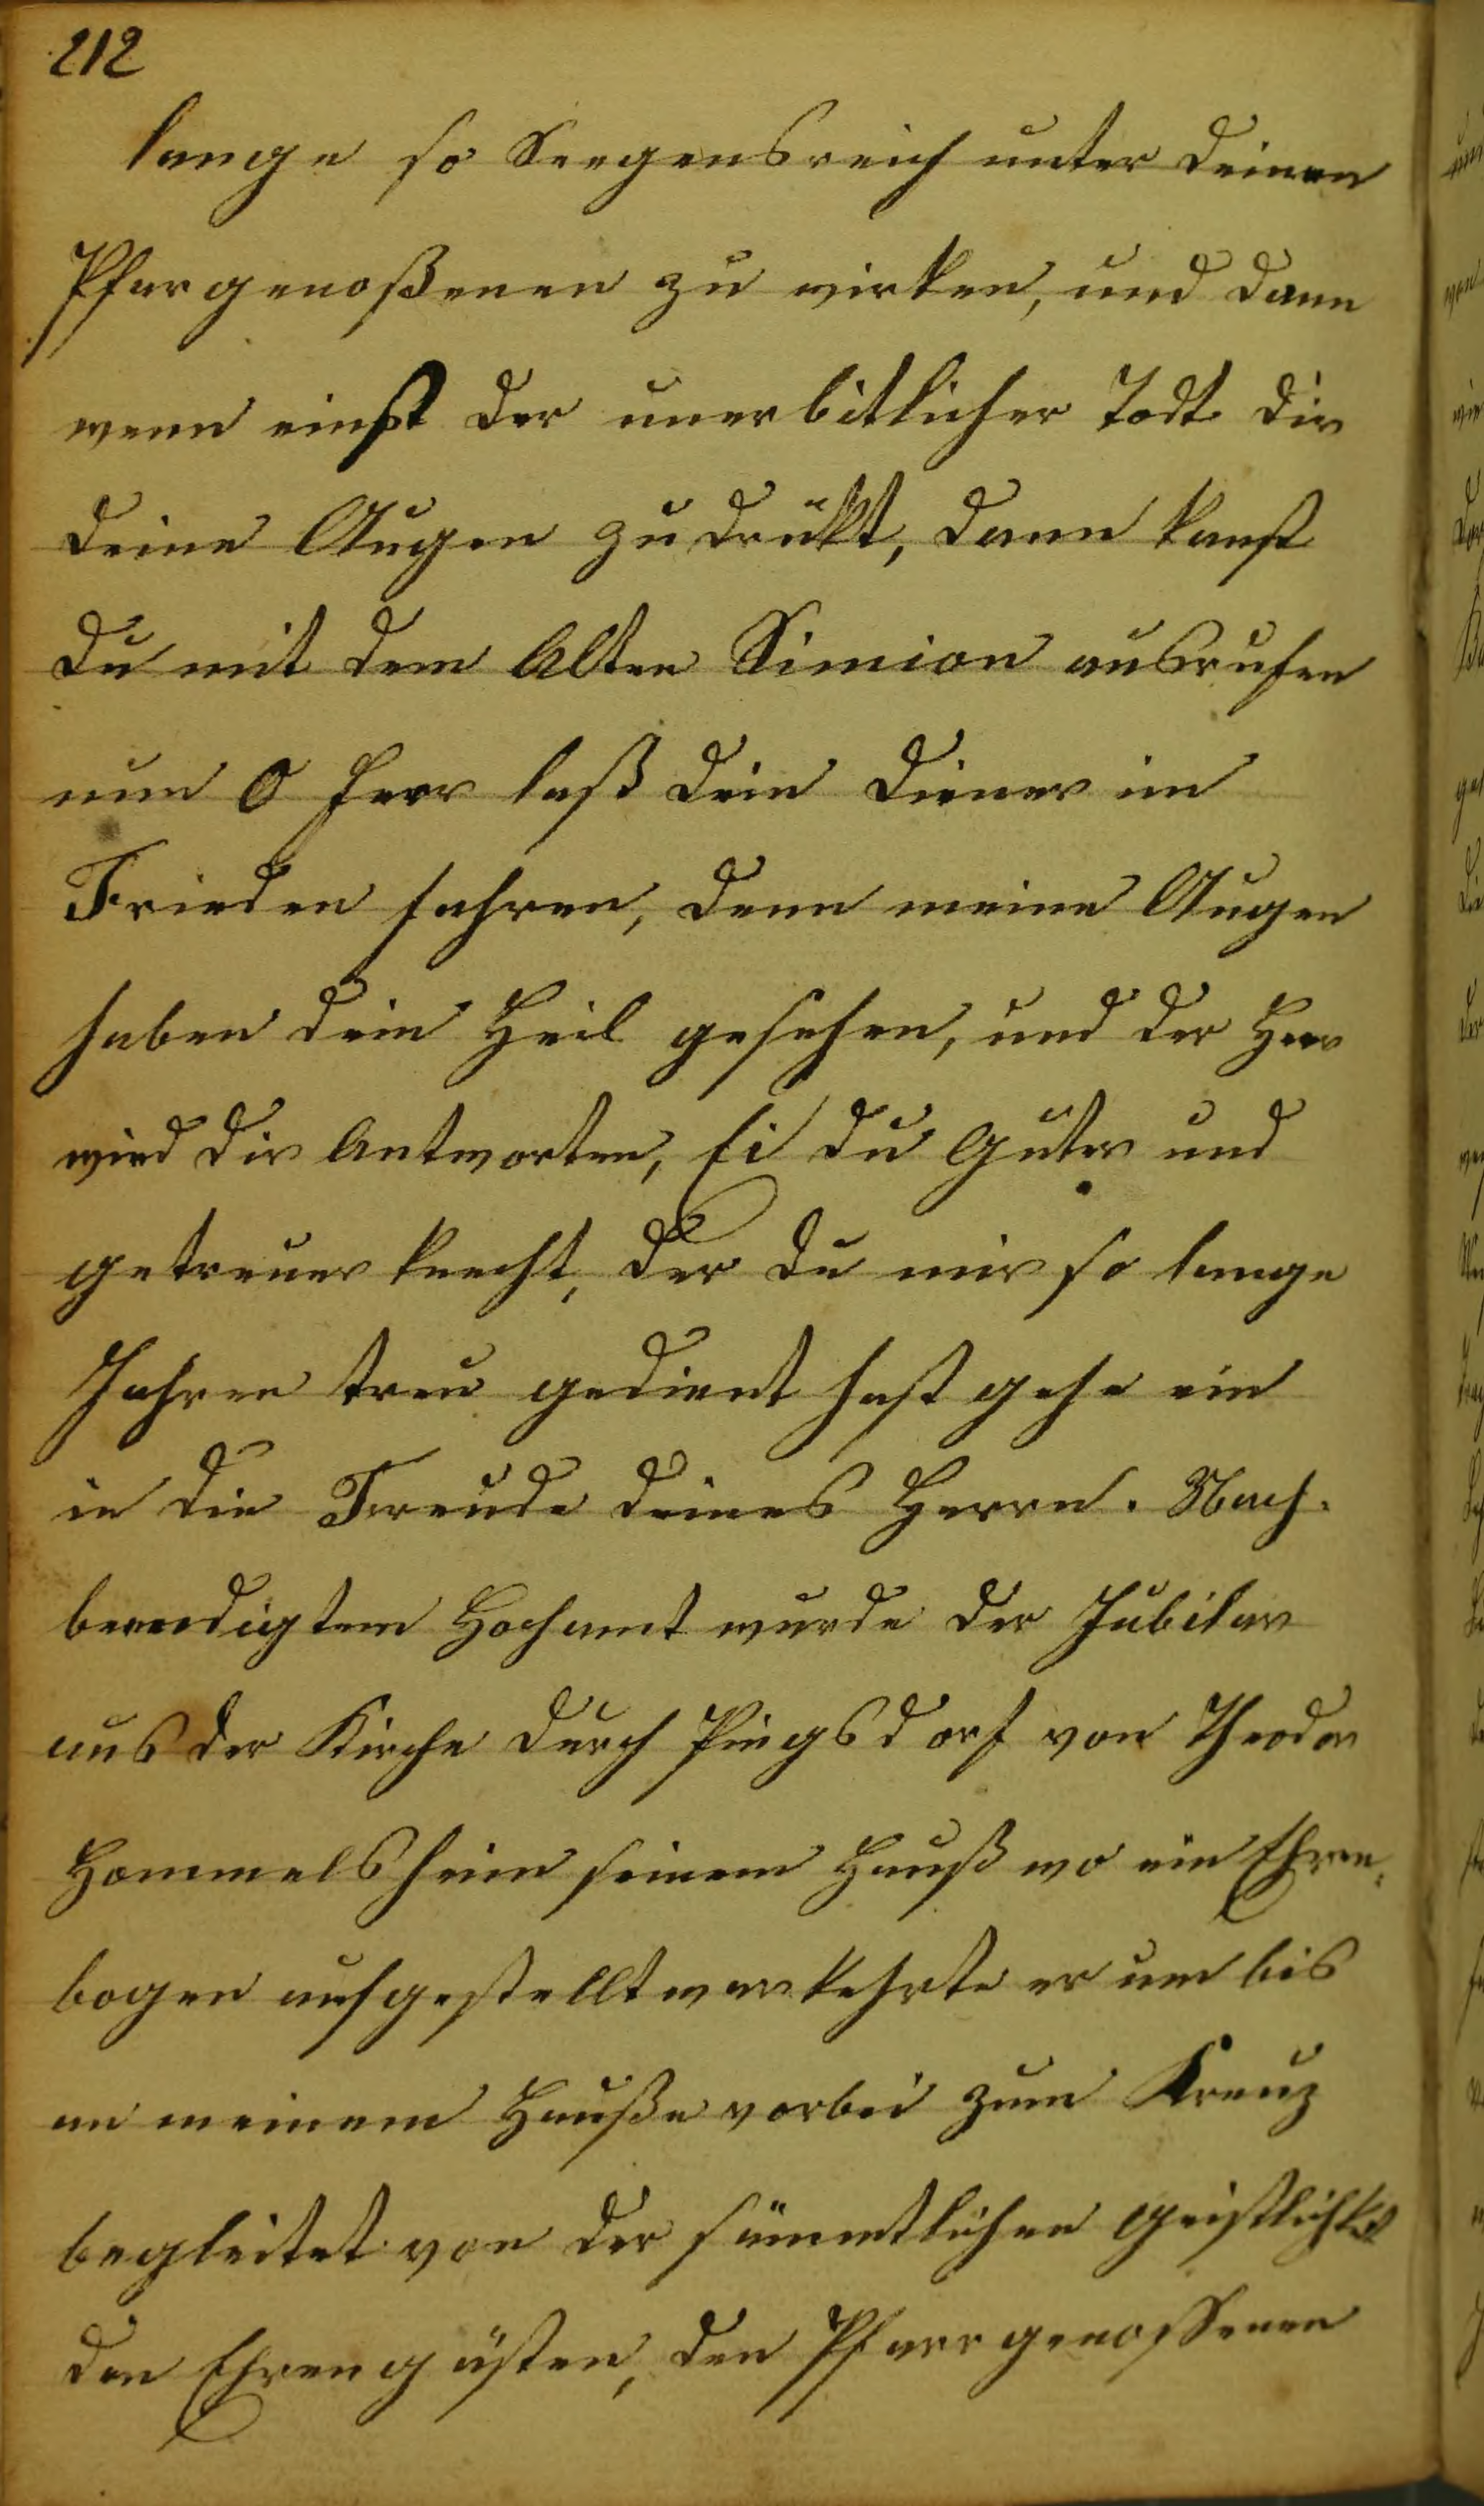 212
lange so Seegensreich unter deinen
Pfargenoßenen zu wirken, und dann
wenn einst der unerbitlicher Todt dir
deine Augen zudrükt, dann kanst
du mit dem Alten Simion ausrufen
nun O Herr laß dein Diener im
Frieden fahren, denn meine Augen
haben dein Heil gesehen, und der Herr
wird dir Antworten, Ei du Guter und
getreuer Knecht, der du mir so lange
Jahren treu gedient hast gehe ein
in die Freude deines Herrn. Nach
beendigtem Hochamt wurde der Jubilar
aus der Kirche durch Pingsdorf von Theodor
Hommelsheim seinem Hauß wo ein Ehren-
bogen aufgestellt war kehrte er um bis
an meinem Hauße vorbei zum Kreuz
begleitet von der sämmtlichen Geistlichkeit
den Ehrengästen, den Pfarrgenossenen